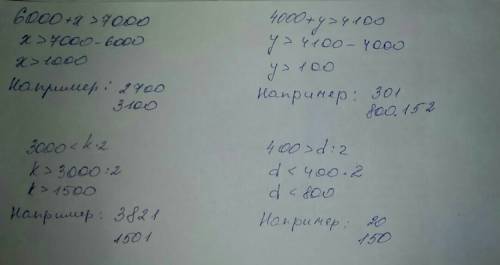 6000+x>7000
x>7000-6000
x>1000
Например: 2700
3100
4000+y>4100
y>4100-4000
y>100
Например: 301
800.152
3000<k·2
k>3000:2
k>1500
Например: 3821
1501
400>d:2
d<400·2
d<800
Например: 20
150